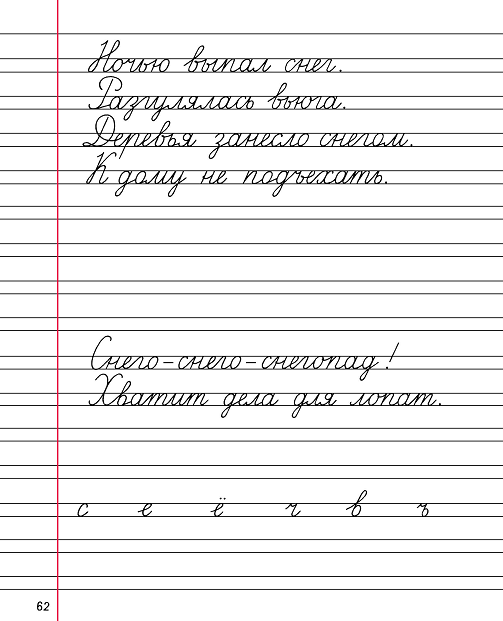 Ночью выпал снег.
Разгулялась вьюга.
Деревья занесло снегом.
К дому не подъехать.
Снего-снего-снегопад!
Хватит дела для лопат.
с е ё ч в ъ
62